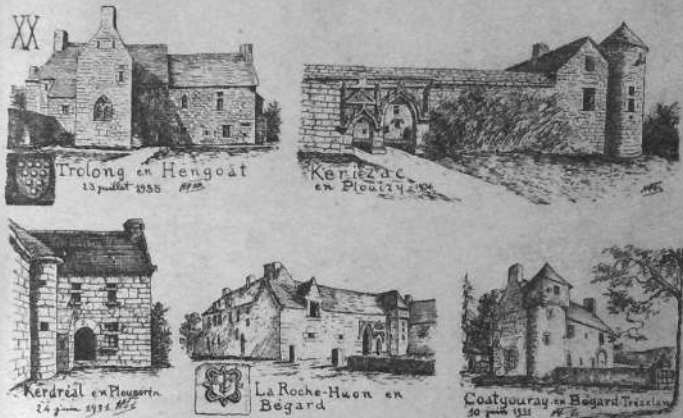 XX
Trolong en Hengoat
23 juillet 1938
Kericzac
en Plouizy
Kerdréal en Plouserin
24 juin 1931
La Roche-Huon en
Bégard
Coatgouray en Bégard-Trézelan
10 juin 1931